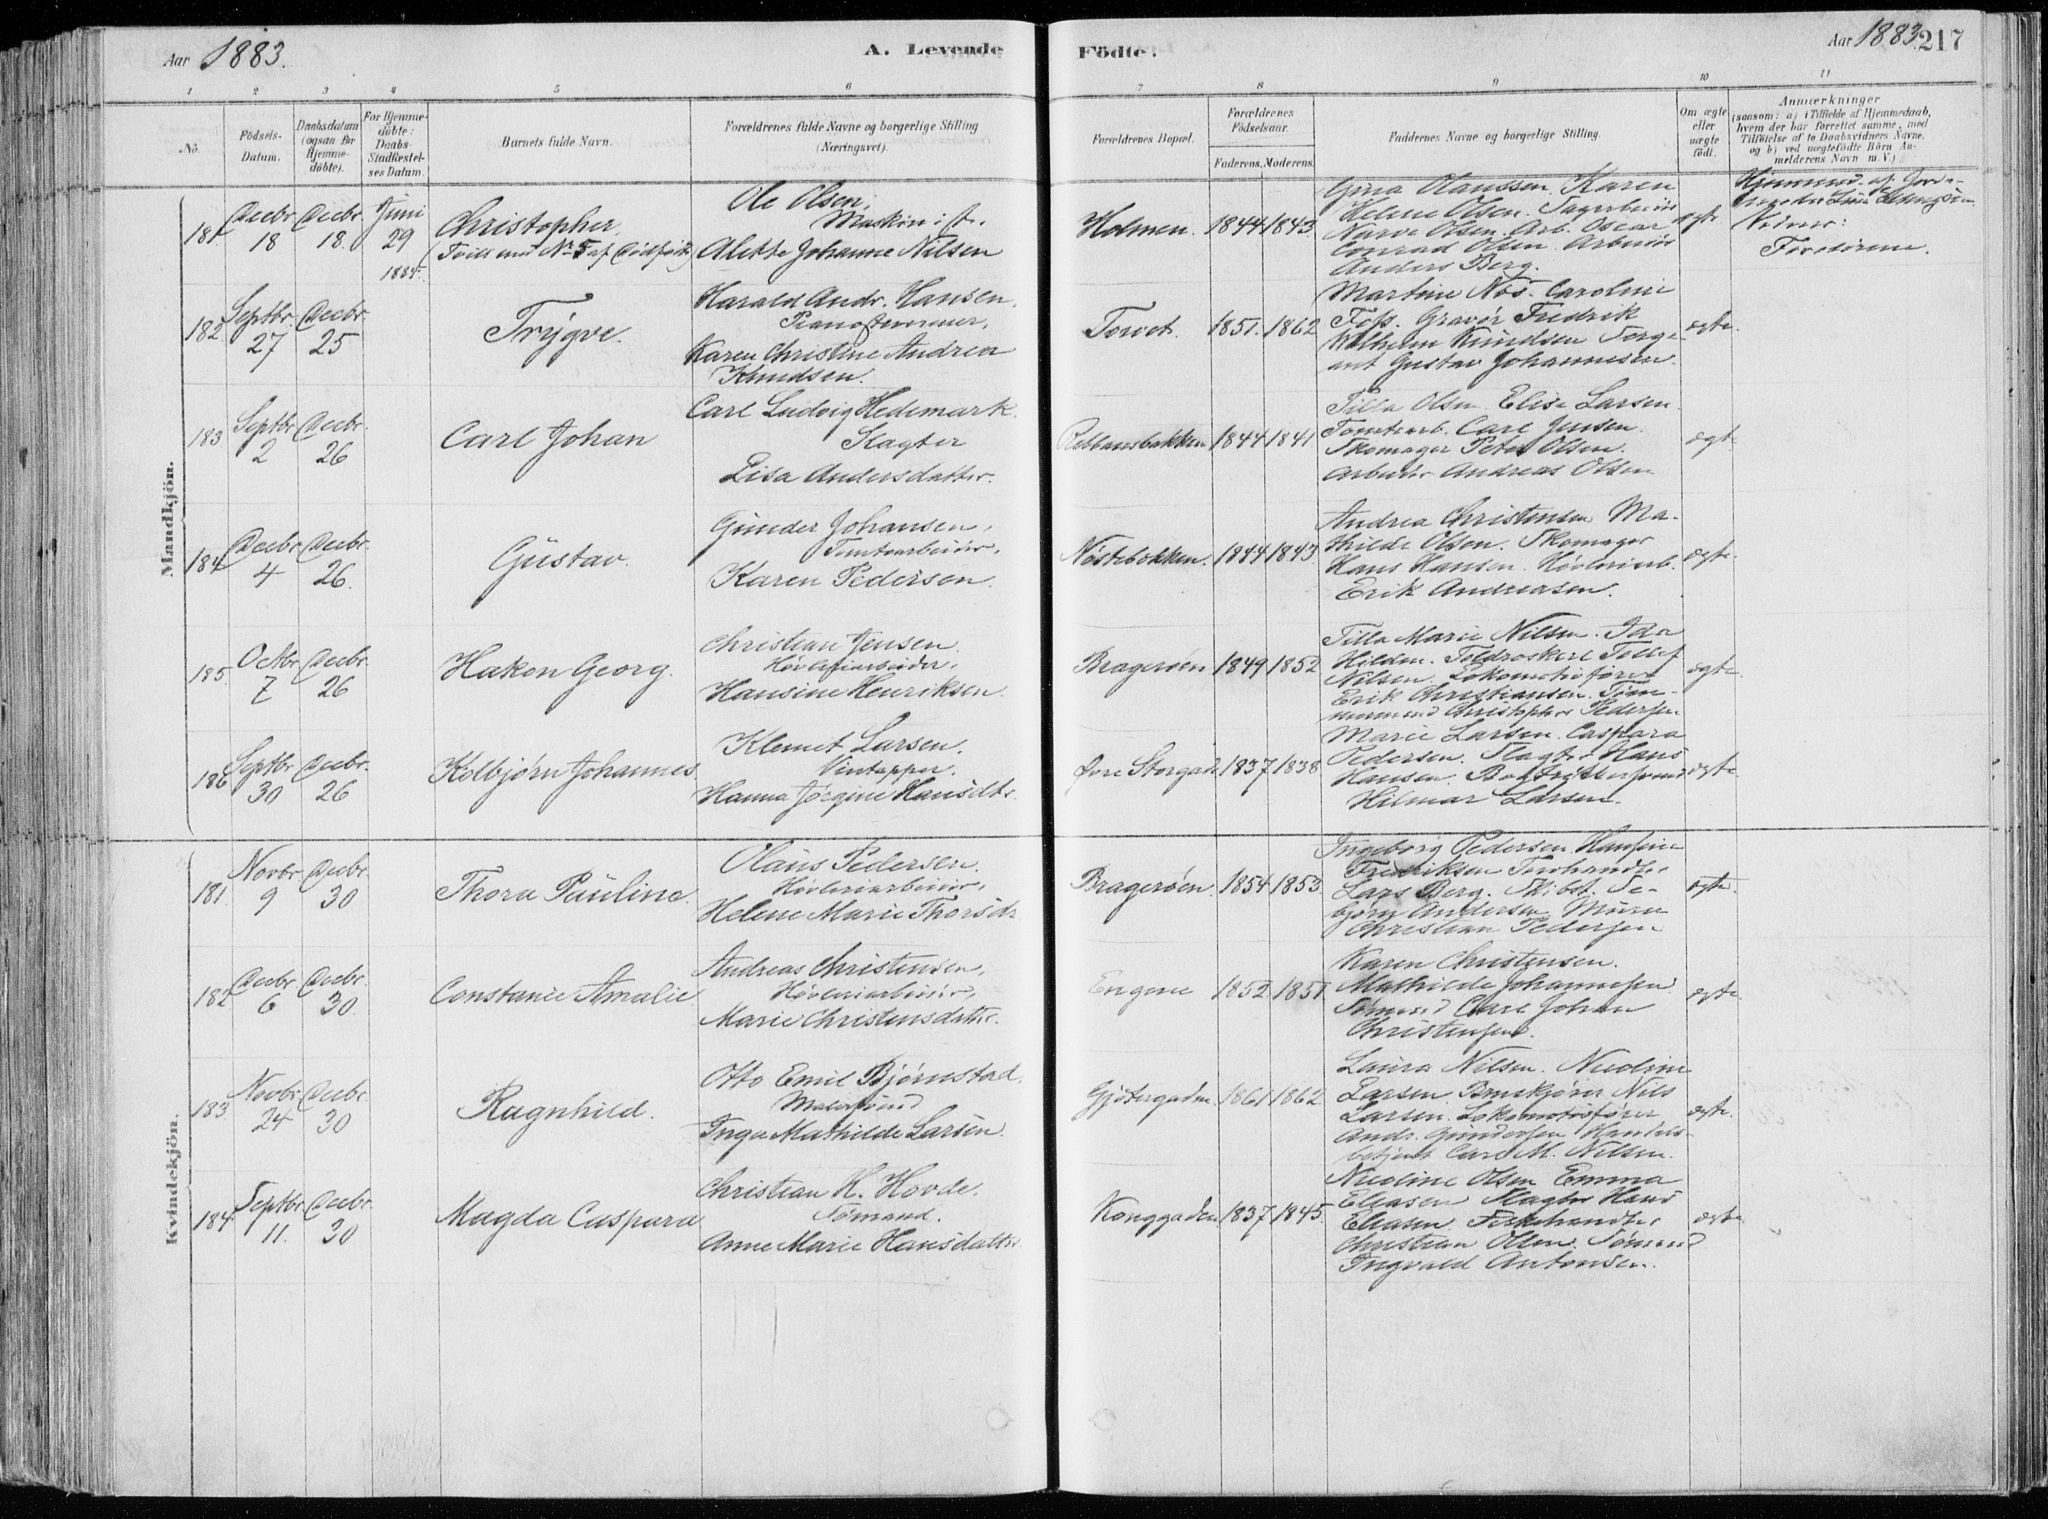 Aar 1883.
A. Levende
Födte.
Aar 1883. 217
1 2 3 4 5 6 7 8 9 10 11
No.
Födsels-Datum.
Daabsdatum (ogsaa for Hjemme-döbte).
For Hjemme-döbte: Daabs-Stadfæstel-ses Datum.
Barnets fulde Navn.
Forældrenes fulde Navne og borgerlige Stilling (Næringsvei).
Forældrenes Bopæl.
Forældrenes Födselsaar.
Faderens. Moderens.
Faddernes Navne og borgerlige Stilling.
Om ægte eller uægte födt.
Anmærkninger
(saasom: a) i Tilfælde af Hjemmedaab,
hvem der har forrettet samme, med
Tilföielse af to Daabsvidners Navne,
og b) ved uægtefödte Börn An-
melderens Navn m. V.)
Mandkjön.
181 Decbr. 18 Decbr. 18. Juni 29 1884.
Christopher.
(Tvill. med No 5 af Dødfødte)
Ole Olsen,
Maskinist.
Alette Johanne Nilsen
Holmen. 1844 1843
Gina Olaussen. Karen
Helene Olsen.
Narve Olsen. Arb. Oscar
Conrad Olsen. Arbeider
Anders Berg.
ægte
Hjemmed. af Jorde-
Vidner:
Forældrene.
182. Septbr. 27 Decbr. 25
Trygve.
Harald Andr. Hansen,
Pianostemmer,
Karen Christine Andrea
Knudsen.
Torvet. 1851. 1862
Martine Næs. Caroline
Foss. Gravør Fredrik
Wilhelm Knudsen Serge-
ant Gustav Johannesen.
ægte.
183 Septbr. 2 Decbr. 26
Carl Johan
Carl Ludvig Hedemark.
Slagter
Lisa Andersdatter.
1844 1841
Tilla Olsen. Elise Larsen.
Tomtearb. Carl Jensen.
Skomager Peter Olsen.
Arbeider Andreas Olsen
ægte
184 Decbr. 4 Decbr. 26.
Gustav.
Gunder Johansen,
Tomtearbeider,
Karen Pedersen.
Nøstebakken. 1844 1843.
Andrea Christensen Ma-
thilde Olsen. Skomager
Hans Hansen. Høvleriarb.
Erik Andreasen.
ægte.
185. Octbr. 7 Decbr. 26
Hakon Georg.
Christian Jensen.
Høvleriarbeider,
Hansine Henriksen.
Bragerøen 1849 1852
Tilla Marie Nilsen. Ida
Nilsen. Lokomotivfører
Erik Christiansen. Tøm-
mermand Christopher Pedersen.
ægte.
186 Septbr. 30 Decbr. 26
Kolbjørn Johannes
Klemet Larsen.
Vintapper.
Hanna Jørgine Hansdtr.
Øvre Storgade 1837 1838
Marie Larsen. Caspara
Pedersen. Slagter Hans
Hansen. Bogtrykkersvend
Hilmar Larsen.
ægte.
Kvindekjön.
181. Novbr. 9 Decbr. 30
Thora Pauline.
Olaus Pedersen.
Høvleriarbeider,
Helene Marie Thorsdr.
Bragerøen. 1854 1853.
Ingeborg Pedersen. Hansine
Fredriksen
Lars Berg. Skibst. Te-
bjørn Andersen Murer
Christian Pedersen
ægte.
182 Decbr. 6 Decbr. 30.
Constance Amalie
Andreas Christensen,
Høvleriarbeider,
Marie Christensdatter.
Engene 1852. 1851
Karen Christensen.
Mathilde Johannesen
Sømand Carl Johan
Christensen.
ægte.
183 Novbr. 24 Decbr. 30
Ragnhild.
Otto Emil Bjørnstad.
Malersvend
Inga Mathilde Larsen.
Gjetergaden 1861 1862.
Laura Nilsen. Nicoline
Larsen. Nils
Larsen. Lokomotivfører
Andr. Gundersen. Handels-
betjent Carl M. Nilsen.
ægte.
184. Septbr. 11. Decbr. 30
Magda Caspara
Christian H. Hovde.
Sømand.
Anne Marie Hansdatter.
Konggaden 1837 1845.
Nicoline Olsen Emma
Eliasen Slagter Hans
Eliasen. Fiskehandler
Christian Olsen. Sømand
Ingvald Antonsen.
ægte